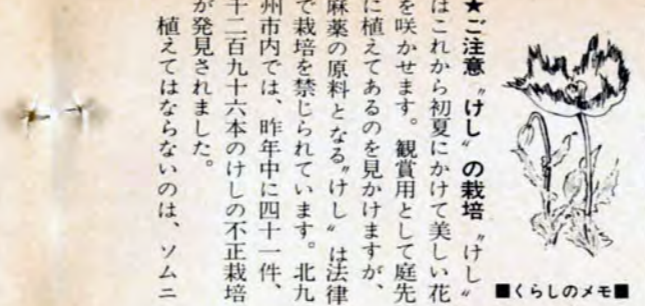 ■くらしのメモ■
★ご注意〝けし〟の栽培　〝けし〟
はこれから初夏にかけて美しい花
を咲かせます。観賞用として庭先
に植えてあるのを見かけますが、
麻薬の原料となる〝けし〟は法律
で栽培を禁じられています。北九
州市内では、昨年中に四十一件、
十二百九十六本のけしの不正栽培
が発見されました。
植えてはならないのは、ソムニ